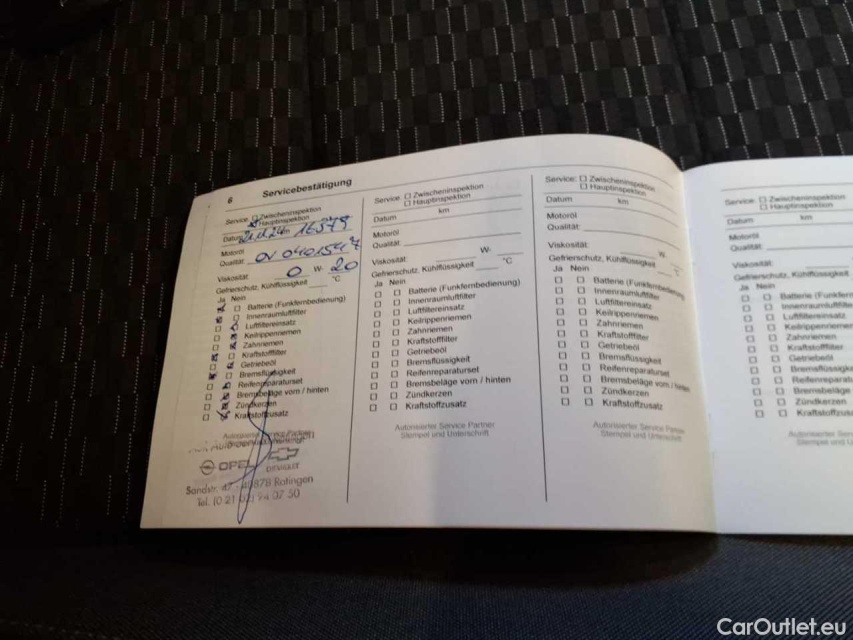 6 Servicebestätigung
Service: ☐ Zwischeninspektion
☒ Hauptinspektion
Datum 16579
Motoröl
Qualität: OV0401547
Viskosität: 0 W- 20
Gefrierschutz, Kühlflüssigkeit °C
Ja Nein
Batterie (Funkfernbedienung)
Innenraumluftfilter
Luftfiltereinsatz
Keilrippenriemen
Zahnriemen
Kraftstofffilter
Getriebeöl
Bremsflüssigkeit
Reifenreparaturset
Bremsbeläge vorn / hinten
Zündkerzen
Kraftstoffzusatz
OPEL CHEVROLET
Sandstr. 47 - 40878 Ratingen
Tel. (0 21 02) 94 07 50
Service: ☐ Zwischeninspektion
☐ Hauptinspektion
Datum km
Motoröl
Qualität:
Viskosität: W-
Gefrierschutz, Kühlflüssigkeit °C
Ja Nein
☐ ☐ Batterie (Funkfernbedienung)
☐ ☐ Innenraumluftfilter
☐ ☐ Luftfiltereinsatz
☐ ☐ Keilrippenriemen
☐ ☐ Zahnriemen
☐ ☐ Kraftstofffilter
☐ ☐ Getriebeöl
☐ ☐ Bremsflüssigkeit
☐ ☐ Reifenreparaturset
☐ ☐ Bremsbeläge vorn / hinten
☐ ☐ Zündkerzen
☐ ☐ Kraftstoffzusatz
Autorisierter Service Partner
Stempel und Unterschrift
Service: ☐ Zwischeninspektion
☐ Hauptinspektion
Datum km
Motoröl
Qualität:
Viskosität: W-
Gefrierschutz, Kühlflüssigkeit °C
Ja Nein
☐ ☐ Batterie (Funkfernbedienung)
☐ ☐ Innenraumluftfilter
☐ ☐ Luftfiltereinsatz
☐ ☐ Keilrippenriemen
☐ ☐ Zahnriemen
☐ ☐ Kraftstofffilter
☐ ☐ Getriebeöl
☐ ☐ Bremsflüssigkeit
☐ ☐ Reifenreparaturset
☐ ☐ Bremsbeläge vorn / hinten
☐ ☐ Zündkerzen
☐ ☐ Kraftstoffzusatz
Autorisierter Service Partner
Stempel und Unterschrift
Service: ☐ Zwischeninspektion
☐ Hauptinspektion
Datum km
Motoröl
Qualität:
Viskosität:
Gefrierschutz, Kühlflüssigkeit
Ja Nein
☐ ☐ Batterie (Funkfern
☐ ☐ Innenraumluftfilter
☐ ☐ Luftfiltereinsatz
☐ ☐ Keilrippenriemen
☐ ☐ Zahnriemen
☐ ☐ Kraftstofffilter
☐ ☐ Getriebeöl
☐ ☐ Bremsflüssigkeit
☐ ☐ Reifenreparaturset
☐ ☐ Bremsbeläge
☐ ☐ Zündkerzen
☐ ☐ Kraftstoffzusatz
Autorisierter Service
Stempel und U
CarOutlet.eu